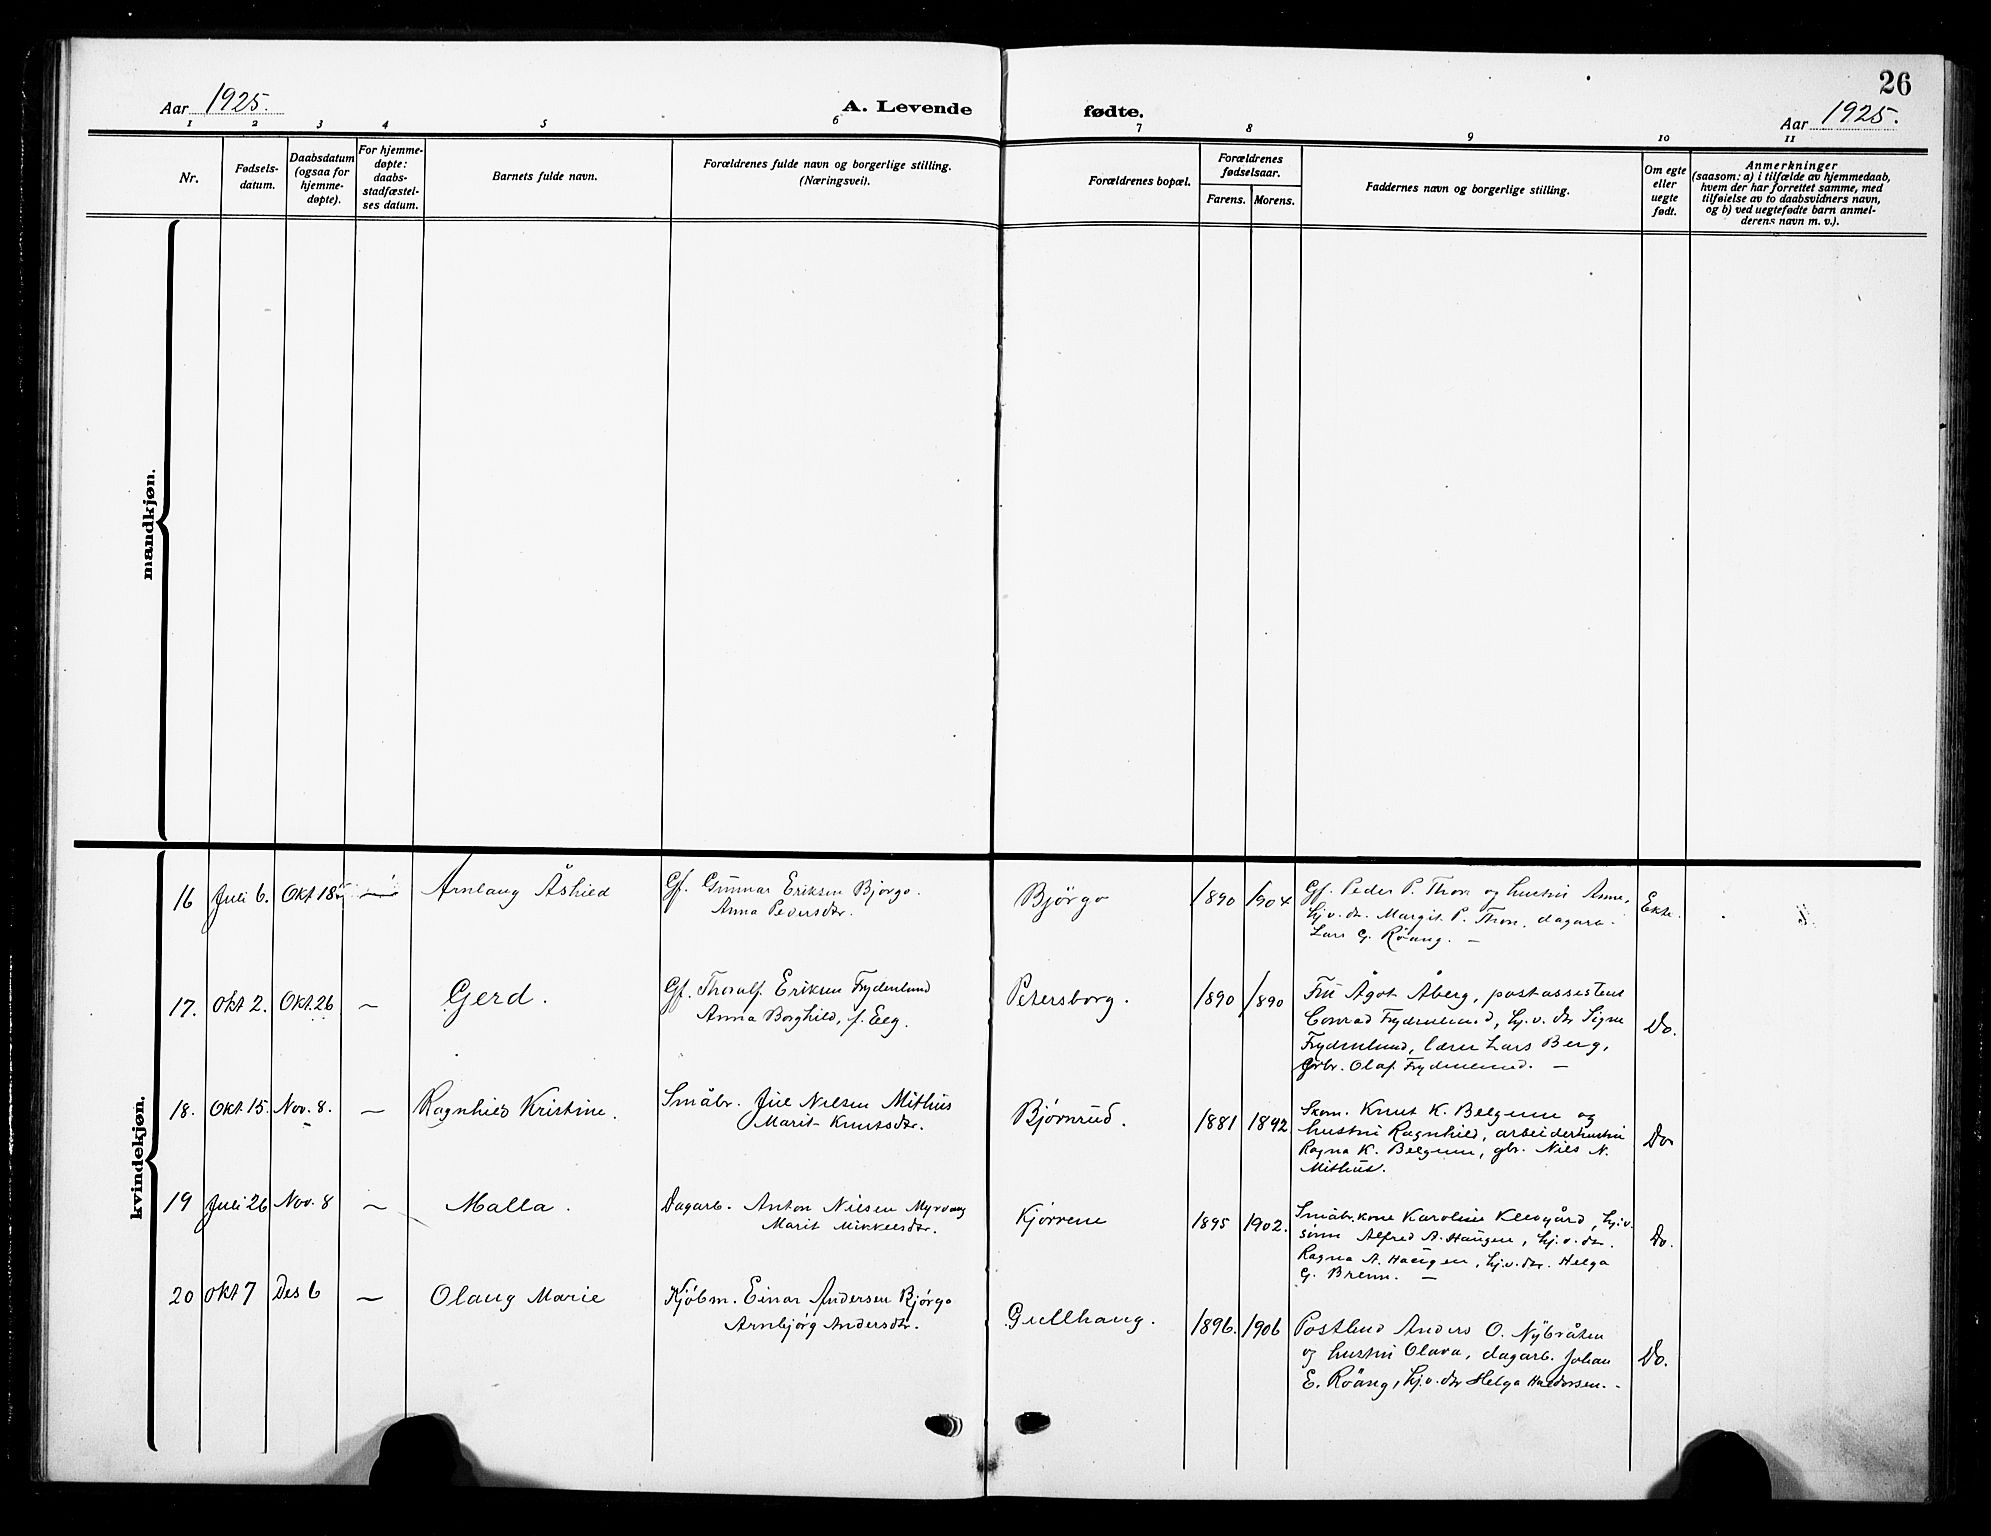 26
Aar 1925.
A. Levende fødte.
Aar 1925.
1 2 3 4 5 6 7 8 9 10 11
Nr.
Fødsels-
datum.
Daabsdatum
(ogsaa for
hjemme-
døpte).
For hjemme-
døpte:
daabs-
stadfæstel-
ses datum.
Barnets fulde navn.
Forældrenes fulde navn og borgerlige stilling.
(Næringsvei).
Forældrenes bopæl.
Forældrenes
fødselsaar.
Farens. Morens.
Faddernes navn og borgerlige stilling.
Om egte
eller
uegte
født.
Anmerkninger
(saasom: a) i tilfælde av hjemmedaab,
hvem der har forrettet samme, med
tilføielse av to daabsvidners navn,
og b) ved uegtefødte barn anmel-
derens navn m. v.).
mandkjøn.
kvindekjøn.
16 Juli 6. Okt 18 — Arnlaug Åshild
Gf. Gunnar Eriksen Bjørgo.
Anna Pedersdtr.
Bjørgo
1890 1904
Gf. Peder P. Thon og hustru Anne,
hj.v. dr. Margit P. Thon, dagarb.
Lars G. Røang. —
Ekte.
17. Okt 2. Okt. 26 — Gerd.
Gf. Thoralf Eriksen Frydenlund
Anna Borghild, f. Elg.
Petersborg.
1890 1890
Fru Ågot Åberg, postassistent
Conrad Frydenlund, hj.v. dtr Signe
Frydenlund, lærer Lars Berg,
Grbr. Olaf Frydenlund. —
Do.
18. Okt 15. Nov. 8. — Ragnhild Kristine.
Småbr. Jul Nilsen Mithus
Marit Knutsdtr.
Bjørnrud.
1881 1892
Skom. Knut K. Belgum og
hustru Ragnhild, arbeiderhustru
Ragna K. Belgum, gbr. Nils N.
Mithus.
Do
19 Juli 26 Nov. 8 — Malla.
Dagarb. Anton Nilsen Myrvang
Marit Mikkelsdtr.
Kjørrene
1895 1902.
Småbr.kone Karoline Klevgård, hj.v.
sønn Alfred A. Haugen, hj.v. dtr.
Ragna A. Haugen, hj.v. dtr. Helga
G. Brenn. —
Do.
20 Okt 7 Des 6 — Olaug Marie
Kjøbm. Einar Andersen Bjørgo
Arnbjørg Andersdtr.
Gullhaug.
1896. 1906
Postbud Anders O. Nybråten
og hustru Olava, dagarb. Johan
E. Røang, hj.v. dtr Helga Haldorsen. -
Do.